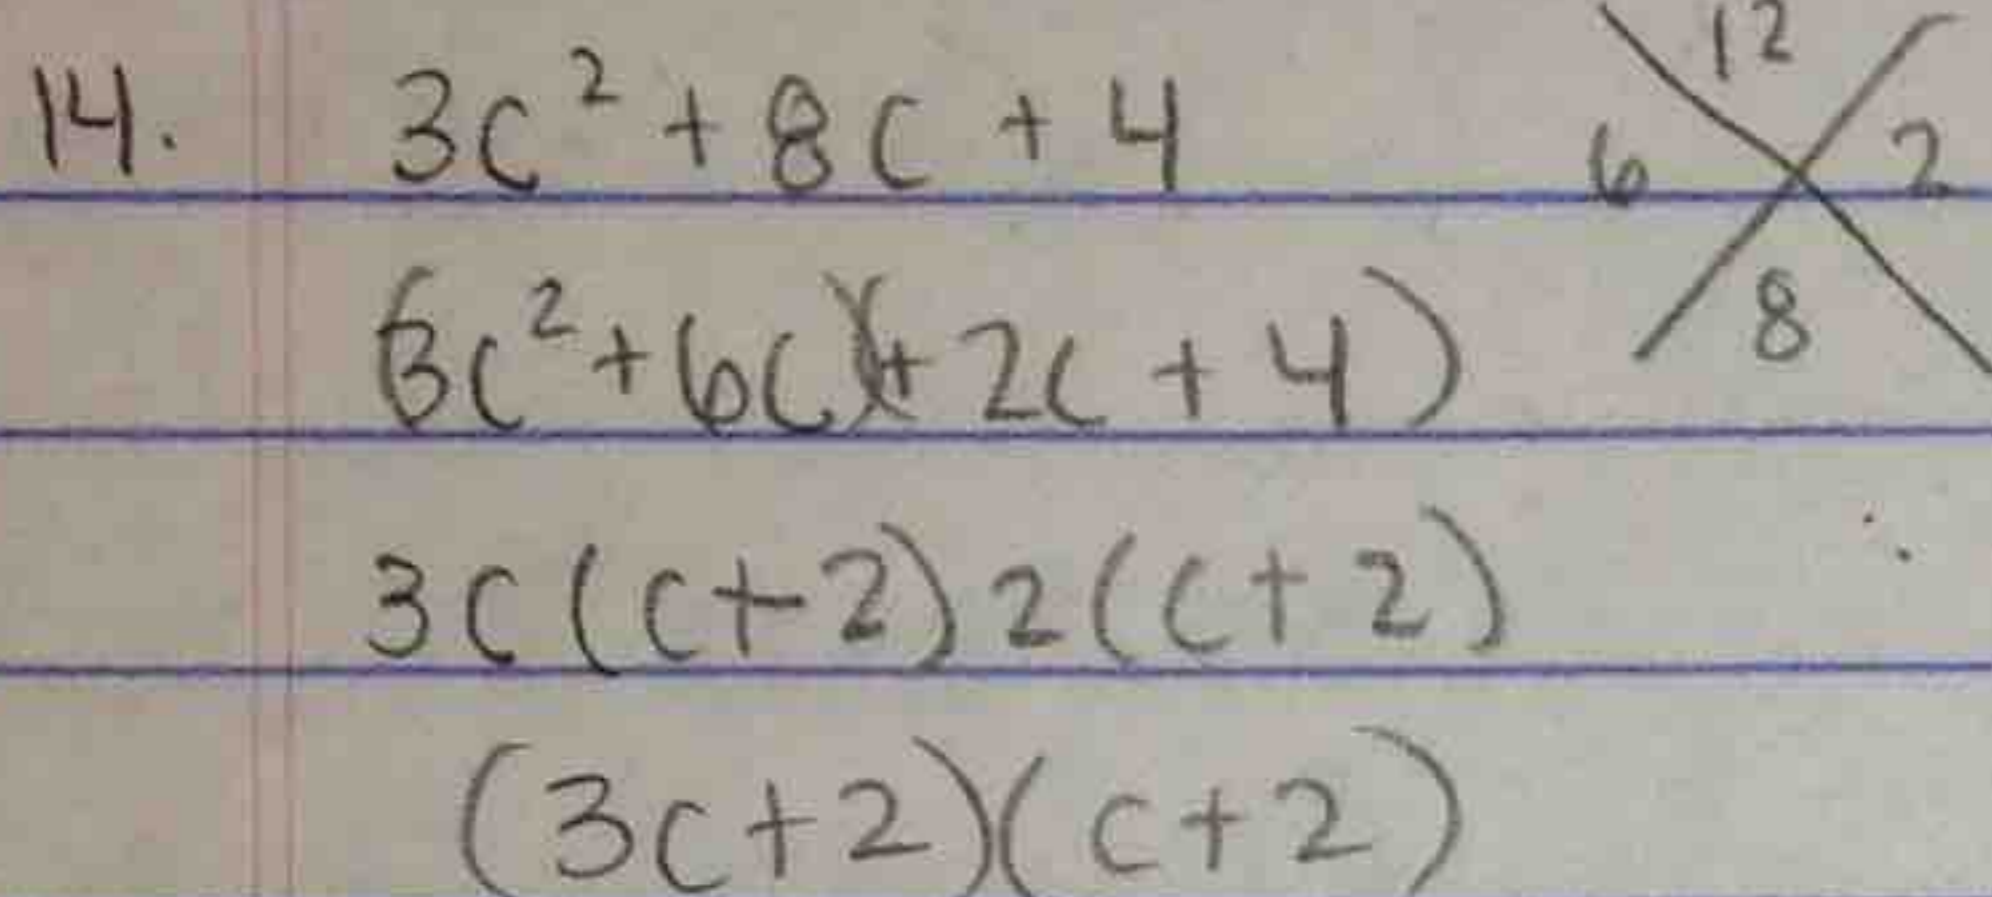 14. 3c² + 8c + 4
12
6 2
8
(3c² + 6c)(+ 2c + 4)
3c(c+2) 2(c+2)
(3c+2)(c+2)